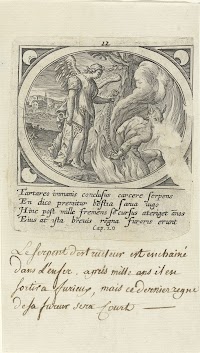 12
Tartarei immanis conclusus carcere serpens
En dice premitur bestia saeva iugo
Hinc post mille fremens secursus ateriget anos
Eius at ista brevis regna furoris erunt
Cap. 20
Le serpent destructeur est enchainé
dans l'enfer. après mille ans il en
sortira furieux, mais ce dernier regne
de sa fureur sera court